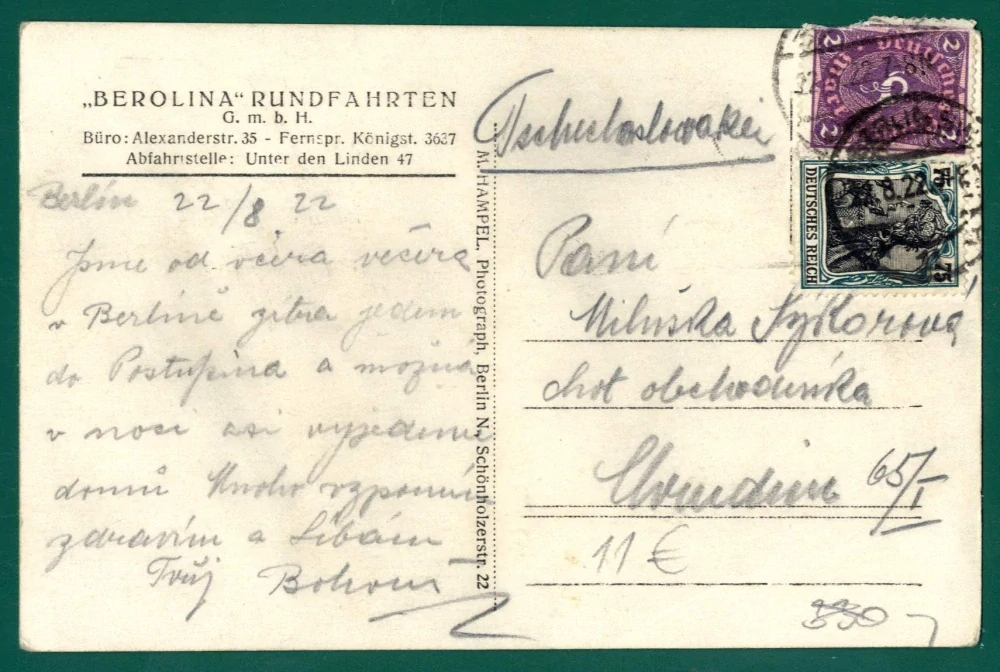 „BEROLINA“ RUNDFAHRTEN
G. m. b. H.
Büro: Alexanderstr. 35 - Fernspr. Königst. 3637
Abfahrtstelle: Unter den Linden 47
Berlín 22/8 22
Jsme od včera večera
v Berlíně zítra jedem
do Postupina a možná
v noci asi vyjedeme
domů Mnoho vzpomín
zdravím a líbám
Tvůj
M. HAMPEL. Photograph, Berlin N., Schönholzerstr. 22
Tschechoslowakei
Paní
Miluška Sýkorová
choť obchodníka
Chrudim 65/I
11 €
330
2 2
Deutsches
Mark
2 2
75 75
DEUTSCHES REICH
8.22